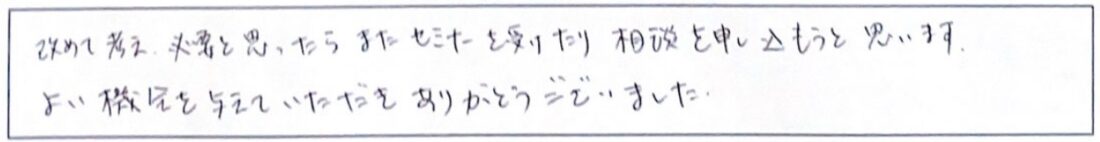 改めて考え、必要と思ったらまたセミナーを受けたり相談を申し込もうと思います。
よい機会を与えていただきありがとうございました。